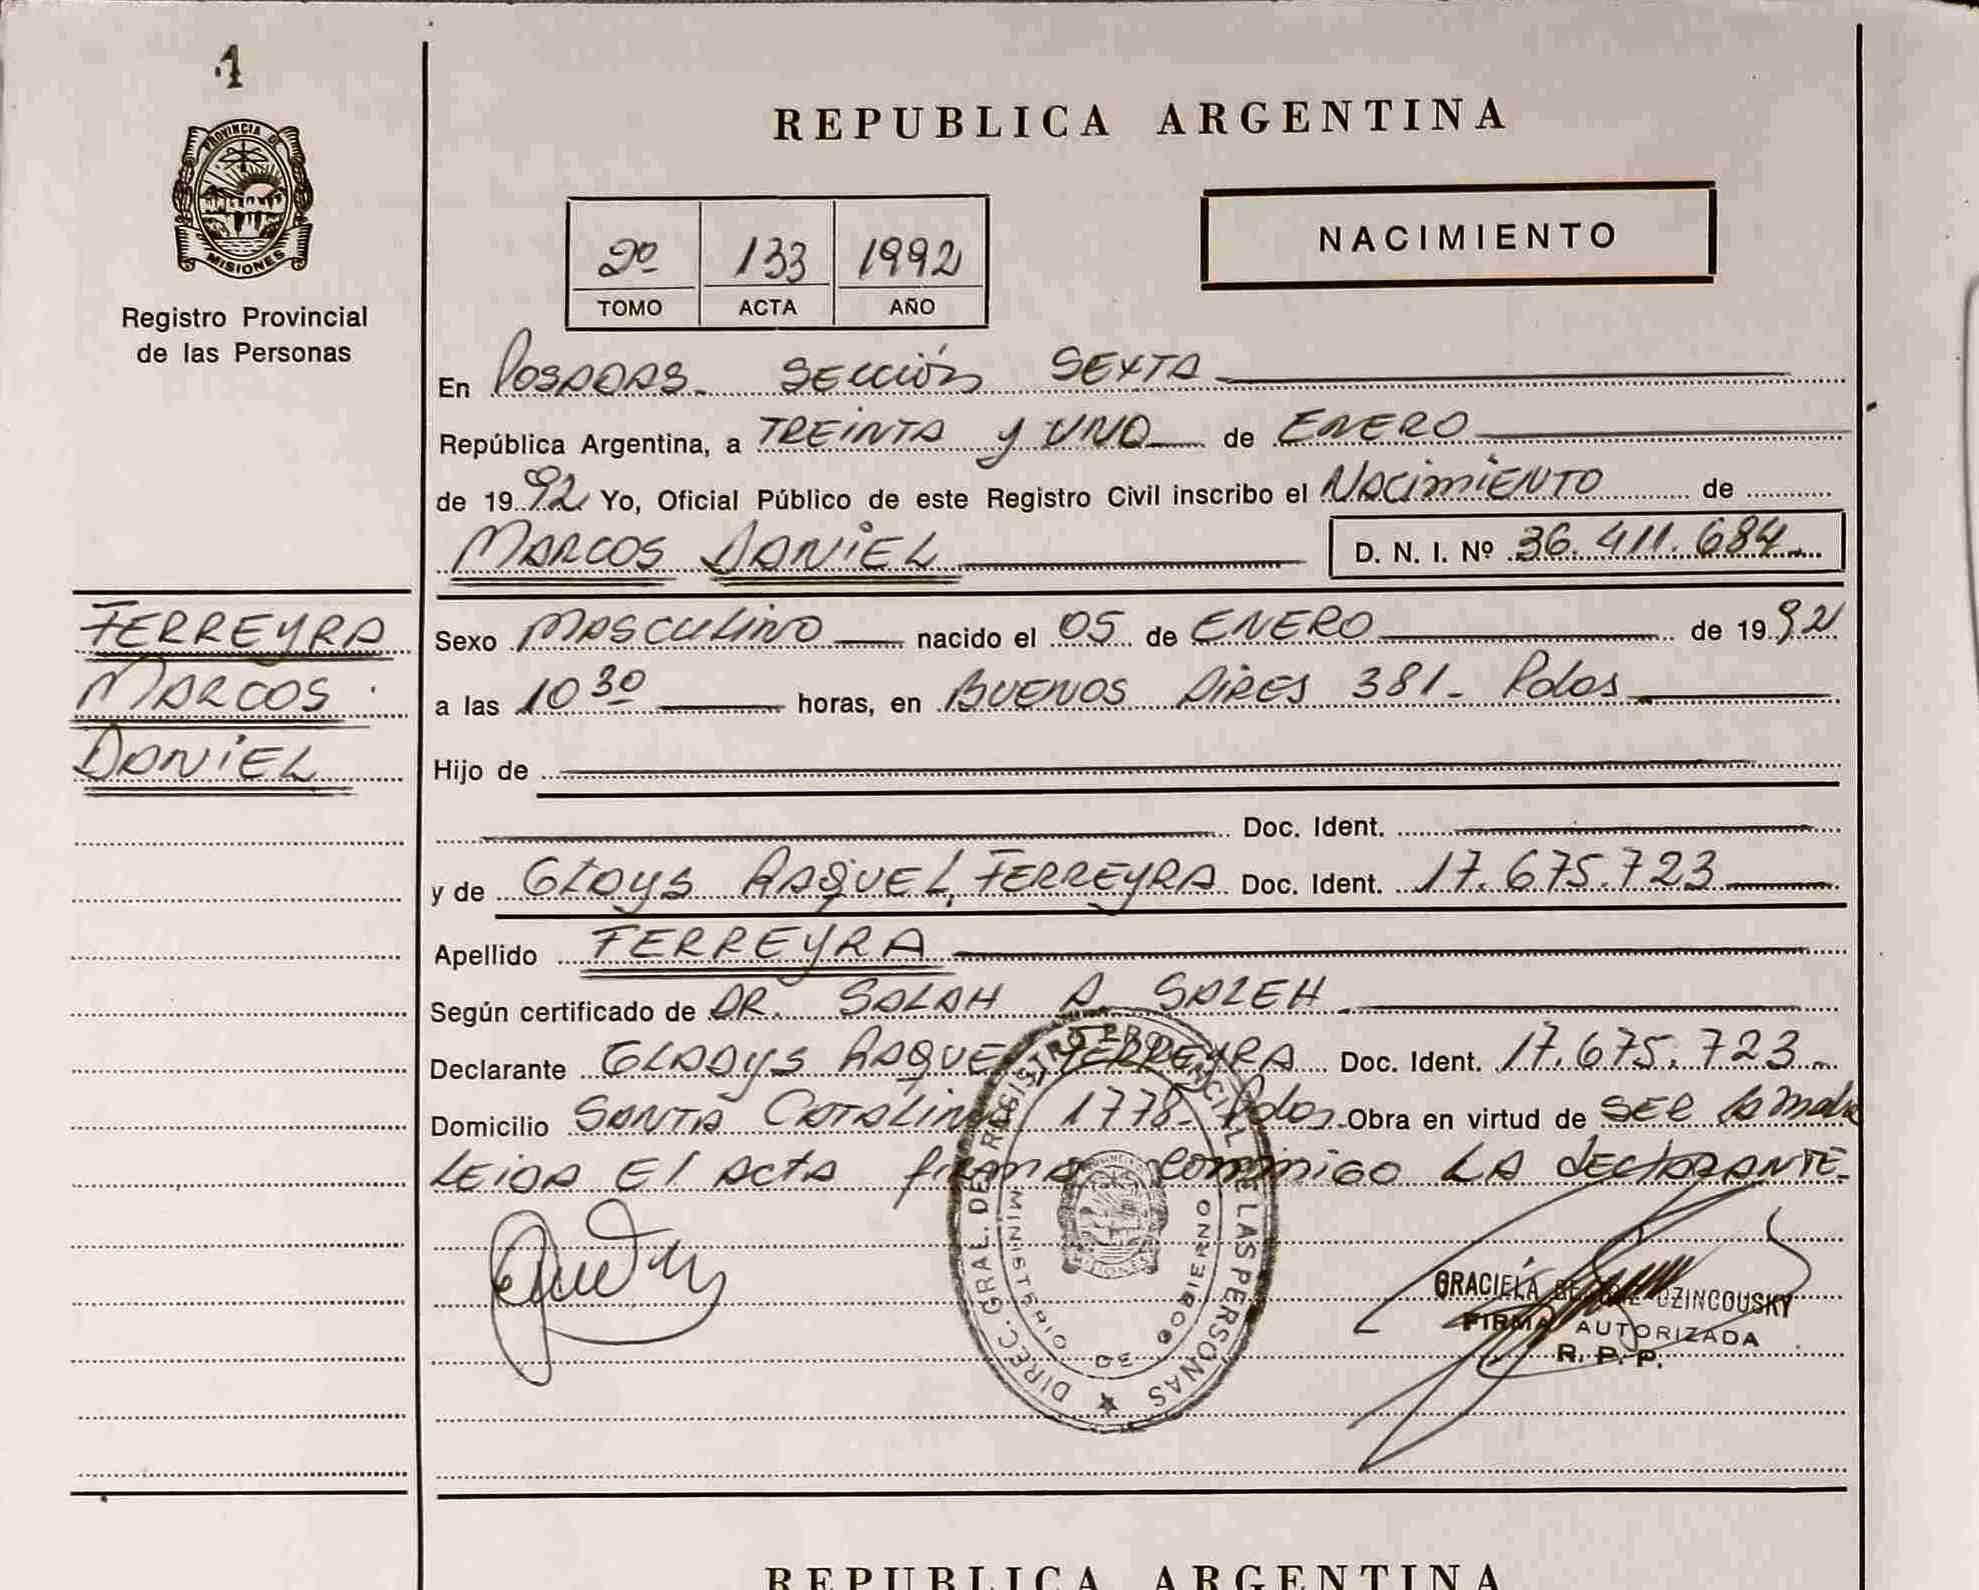 1
PROVINCIA DE
MISIONES
Registro Provincial
de las Personas
FERREYRA
MARCOS
DANIEL
REPUBLICA ARGENTINA
2º 133 1992
TOMO ACTA AÑO
NACIMIENTO
En POSADAS. SECCIÓN SEXTA
República Argentina, a TREINTA y UNO de ENERO
de 1992 Yo, Oficial Público de este Registro Civil inscribo el NACIMIENTO de
MARCOS DANIEL D. N. I. Nº 36.411.684
Sexo MASCULINO nacido el 05 de ENERO de 1992
a las 10 30 horas, en BUENOS AIRES 381- Pdas
Hijo de
Doc. Ident.
y de GLADYS RAQUEL FERREYRA Doc. Ident. 17.675.723
Apellido FERREYRA
Según certificado de DR. SALAH A. SALEH
Declarante GLADYS RAQUEL FERREYRA Doc. Ident. 17.675.723
Domicilio SANTA CATALINA 1778- Pdas. Obra en virtud de SER la madre
LEIDA El ActA firma conmigo LA dEClARANTE-
DIREC. GRAL. DEL REGISTRO PROVINCIAL DE LAS PERSONAS
MINISTERIO DE GOBIERNO
GRACIELA DZINCOUSKY
FIRMA AUTORIZADA
R. P. P.
REPUBLICA ARGENTINA